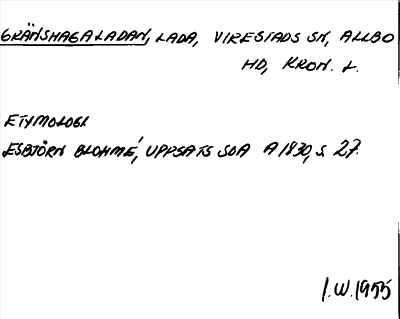 GRÄNSHAGALADAN, LADA, VIRESTADS SN, ALLBO
HD, KRON. L.
ETYMOLOGI.
ESBJÖRN BLOHMÉ, UPPSATS SOA A 1830, S. 27.
I.W. 1955